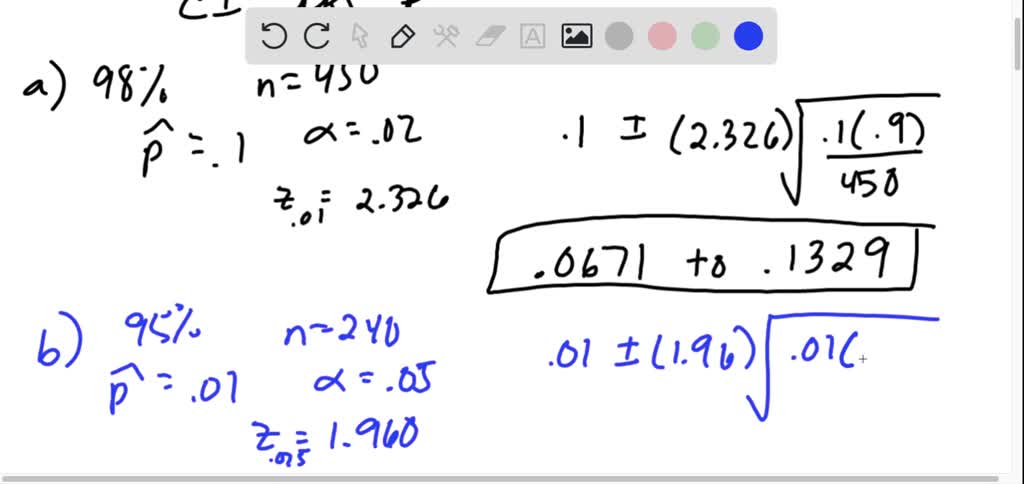 a) 98% n=450
p̂ = .1 α = .02
z.01 = 2.326
.1 ± (2.326)√.1(.9)/450
.0671 to .1329
b) 95% n=240
p̂ = .01 α = .05
z.025 = 1.960
.01 ± (1.96)√.01(